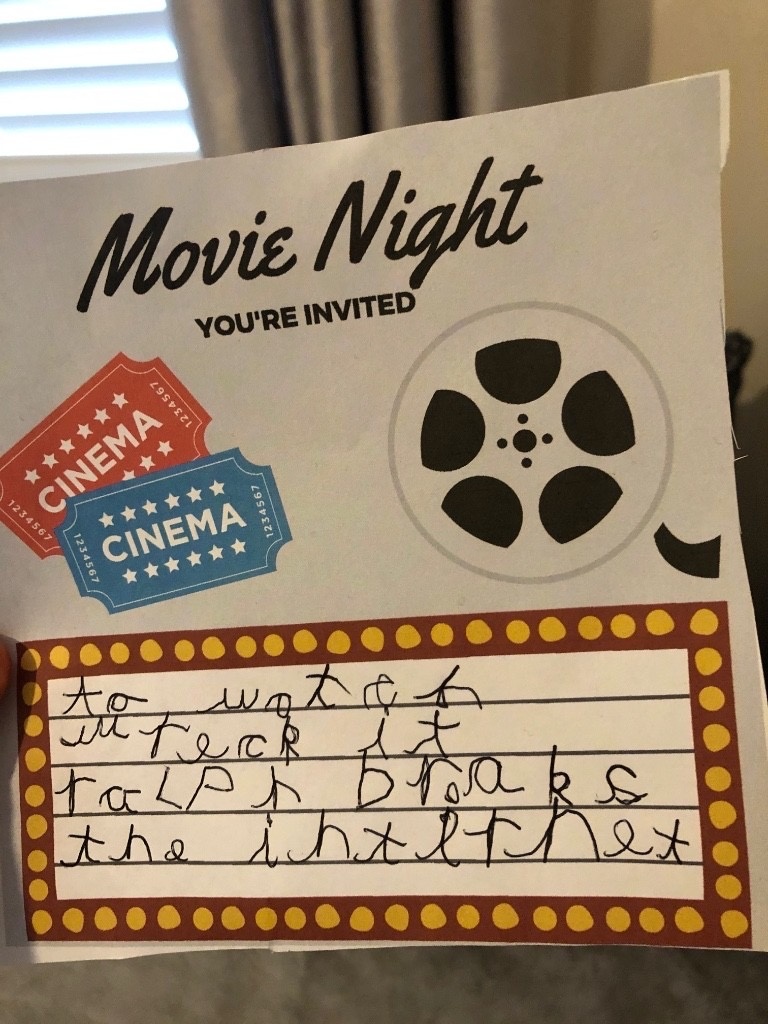 Movie Night
YOU'RE INVITED
CINEMA
1234567
1234567
CINEMA
1234567
1234567
to watch
wreck it
ralph braks
the internet